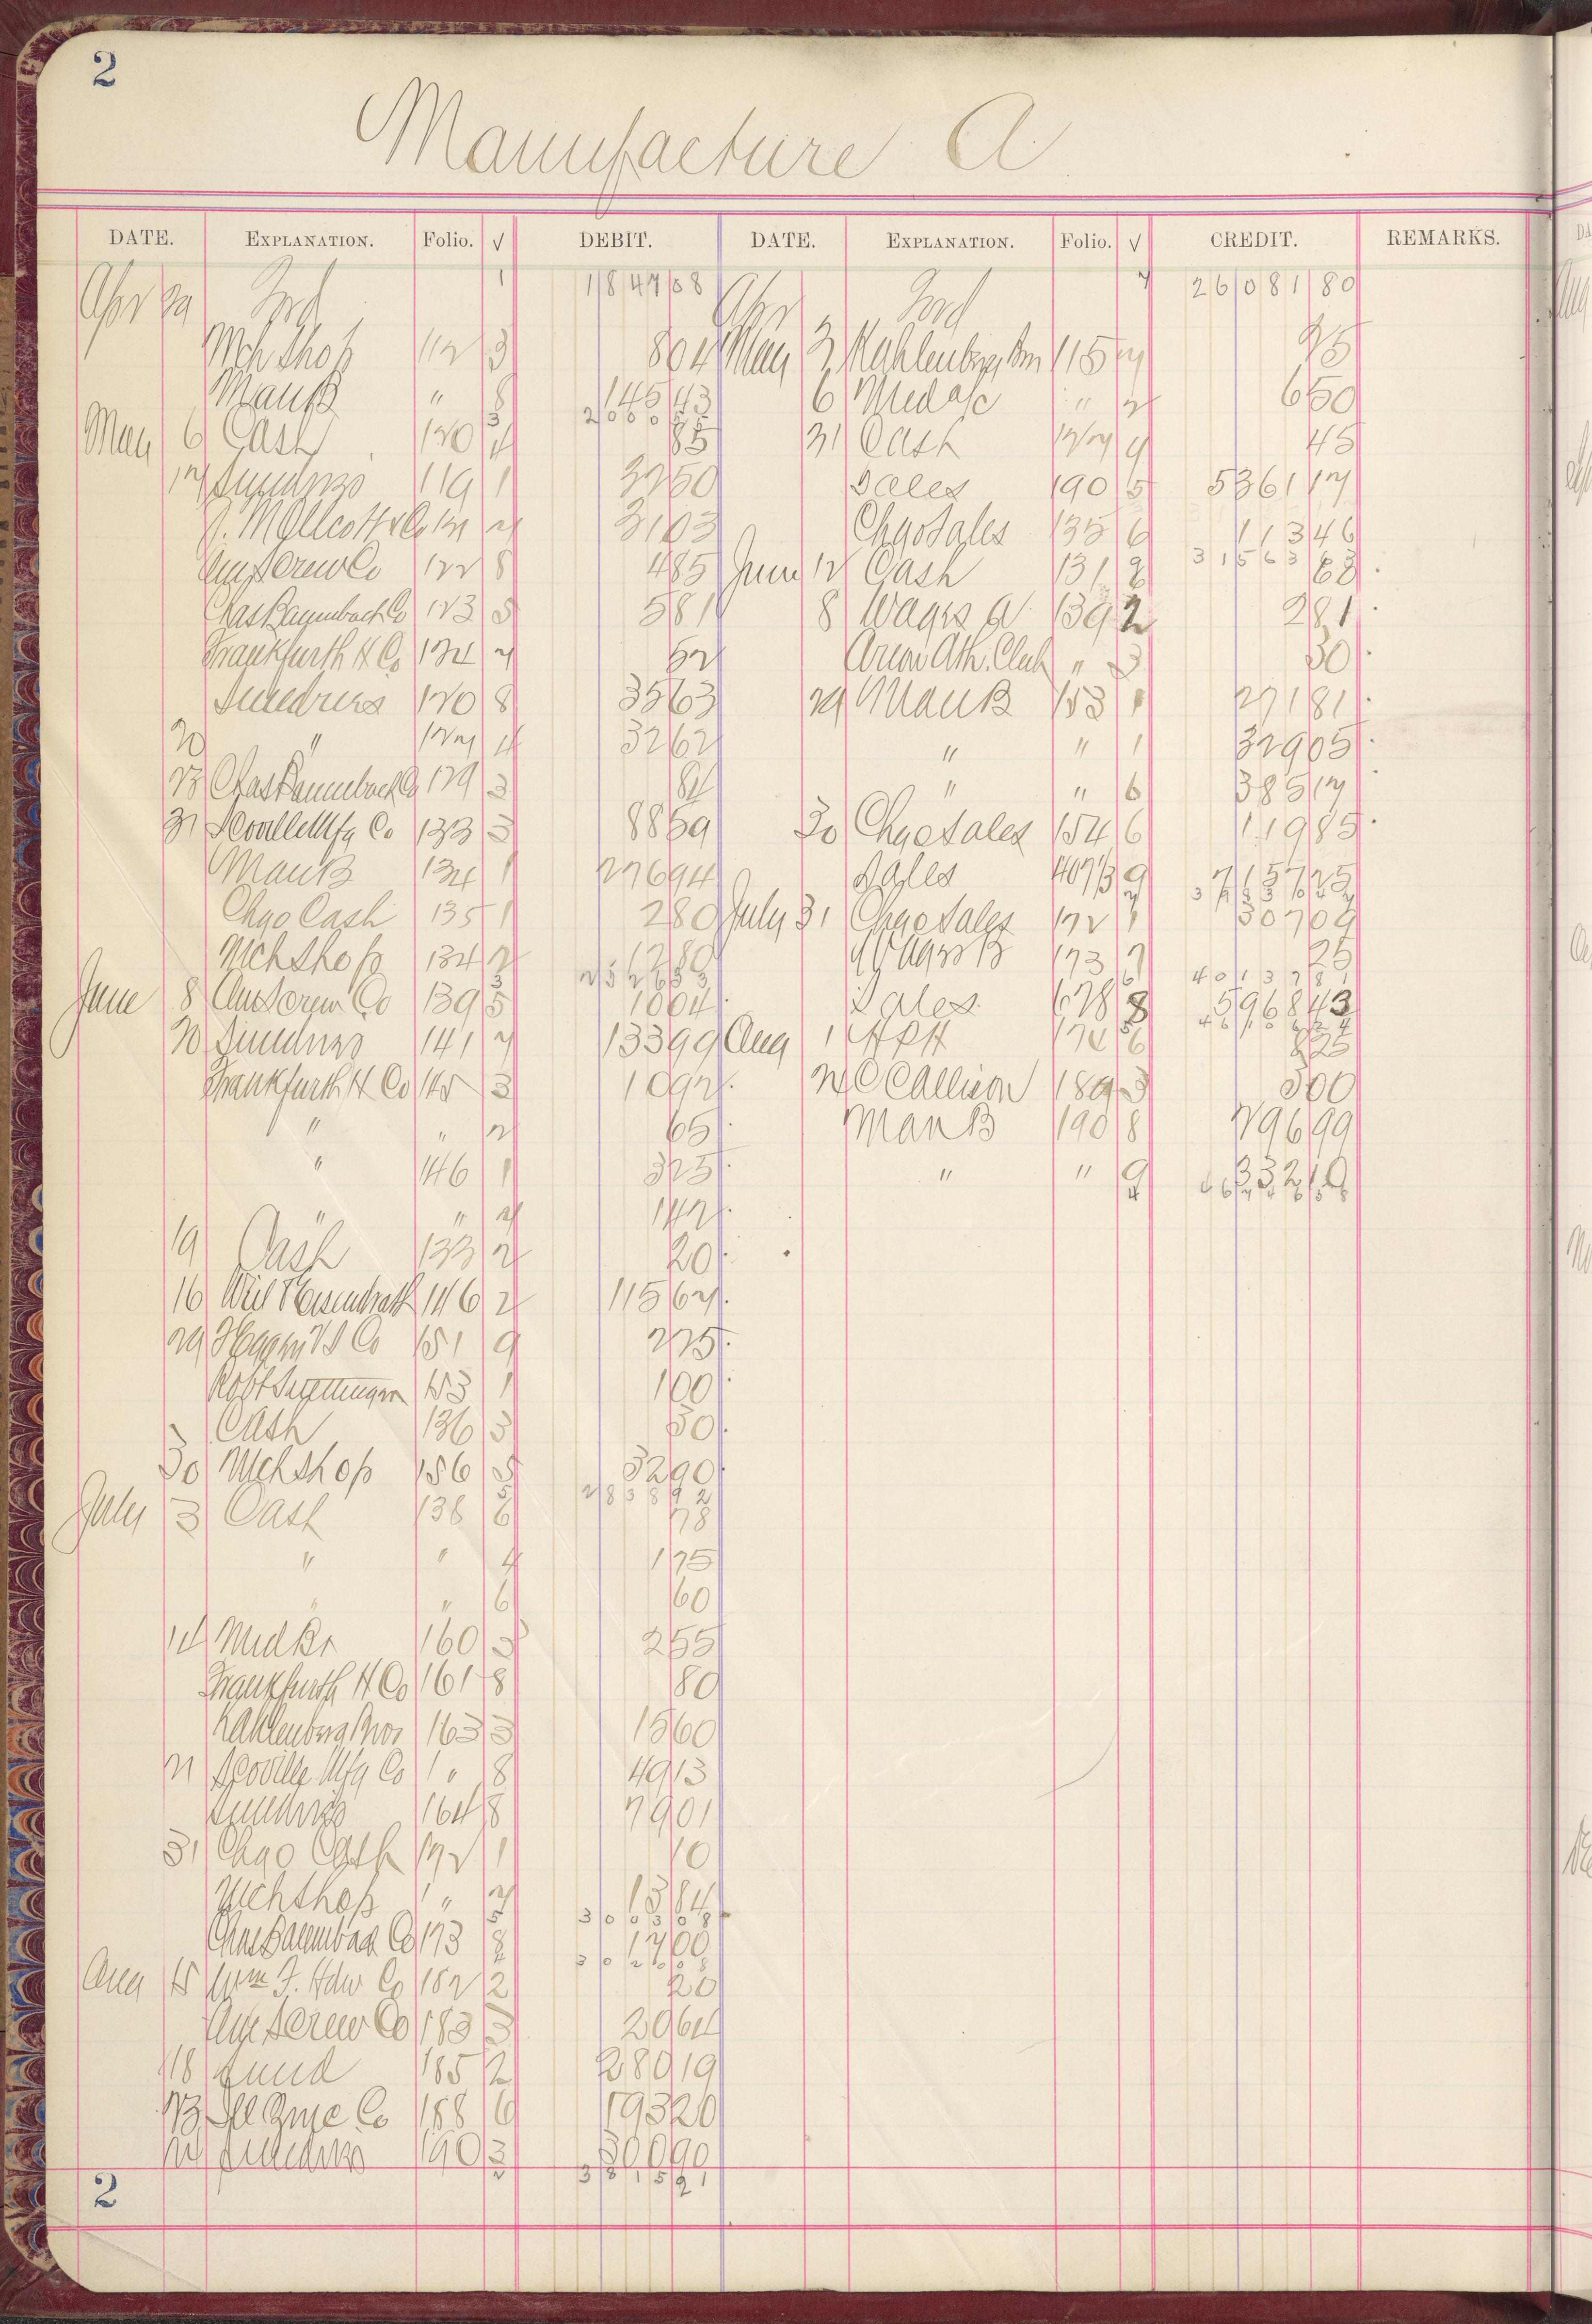 2
Manufacture A
DATE. EXPLANATION. Folio. √ DEBIT. DATE. EXPLANATION. Folio. √ CREDIT. REMARKS.
Apr Ford 1 1847 08 Apr Ford 26081 80
Mch Shop 112 3 8 04 May 3 Kahlenberg Bros 115
Man B " 8 145 43 6 Mdse a/c " 2 6 50
2000 55
May 6 Cash 120 4 85 31 Cash 127 4 45
17 Sundries 119 1 32 50 Sales 190 5 5361 17
Co 121 31 03 Chgo Sales 135 6 113 46
31563
Am Screw Co 122 8 4 85 June 12 Cash 131 2 68
Chas Baumbach Co 123 5 5 81 8 Wages A 139 2 2 81
Frankfurth H Co 124 52 Arion Ath. Club " 3 50
Sundries 120 8 35 63 29 Man B 153 1 271 81
20 " 127 4 32 62 " " 1 329 05
23 Chas Baumbach Co 129 3 84 " " 6 385 17
31 Scoville Mfg Co 133 3 88 59 30 Chgo Sales 154 6 119 85
Man B 134 1 276 94 Sales 9 7157 25
Chgo Cash 135 1 2 80 July 31 Chgo Sales 172 1 307 09
Mch Shop 134 2 12 80 Wages B 173 25
401378 1
June 8 Am Screw Co 139 5 10 04 Sales 678 8 5968 43
20 Sundries 141 133 99 Aug 1 H P H 174 6 8 25
Frankfurth H Co 145 3 10 92 24 C Callison 189 3 5 00
" " 2 65 Man B 190 8 796 99
" 146 1 3 25 " " 9 332 19
" " 1 42
19 Cash 133 2 20
16 Weil & Eisendrath 146 2 115 67
29 Co 151 9 2 25
Robt 153 1 1 00
Cash 136 3 50
30 Mch Shop 156 5 32 90
28389 2
July 3 Cash 138 6 78
" " 4 1 75
" " 6 60
14 Mid Br 160 3 2 55
Frankfurth H Co 161 8 80
Kahlenberg Bros 163 3 15 60
21 Scoville Mfg Co 1 " 8 49 13
Sundries 164 8 79 01
31 Chgo Cash 172 1 10
Mch Shop 1 " 13 84
30030 8
Chas Baumbach Co 173 8 17 00
30200 8
Aug 15 Wm F. Hdw Co 182 2 20
Am Screw Co 183 3 20 64
18 Sund 185 2 280 19
23 Ill Zinc Co 188 6 193 20
24 Sundries 190 3 300 90
38159 1
2